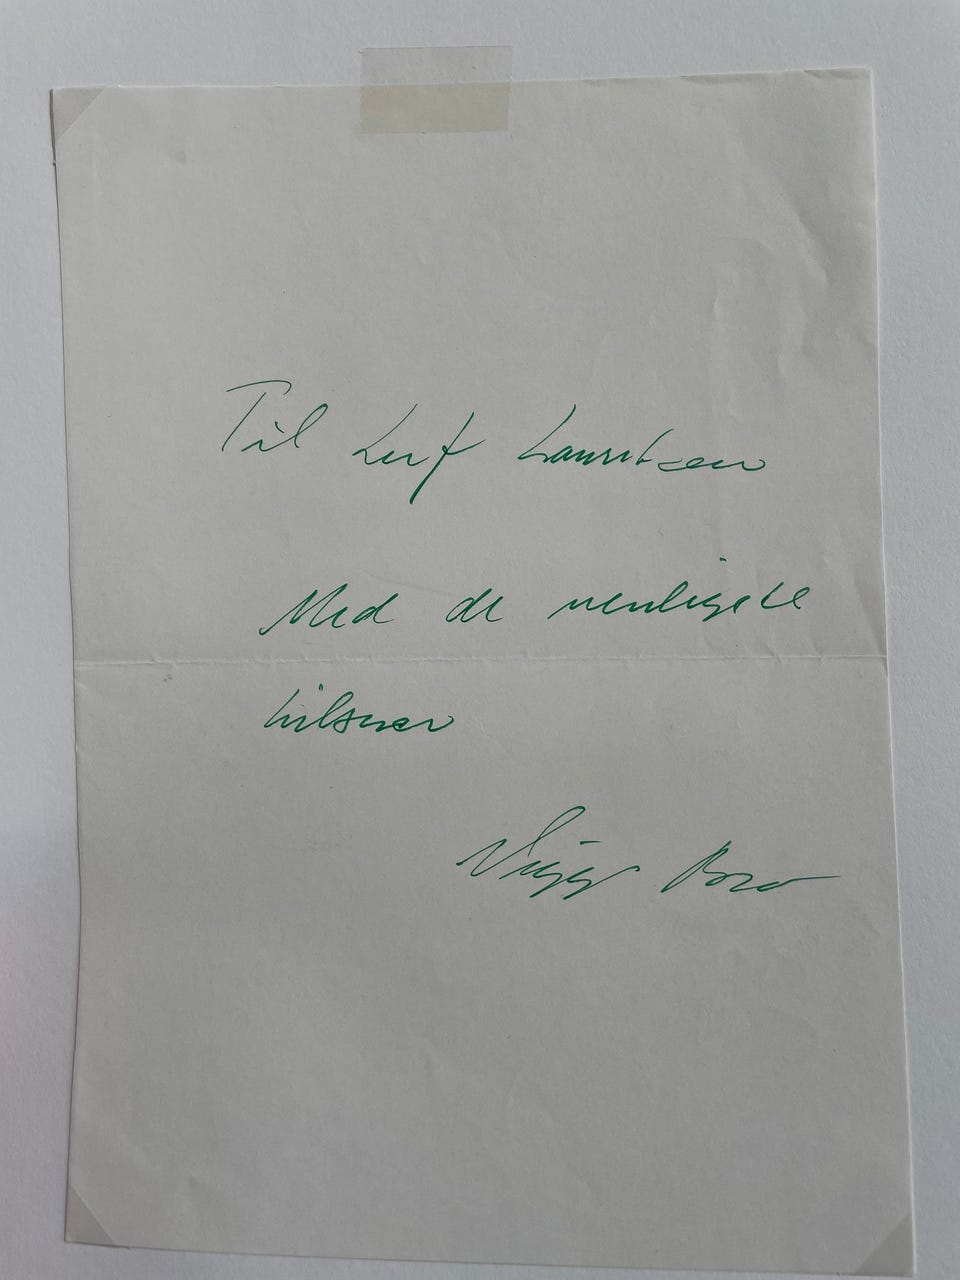 Til Leif Lauritsen
Med de venligste
hilsner
Viggo Boro